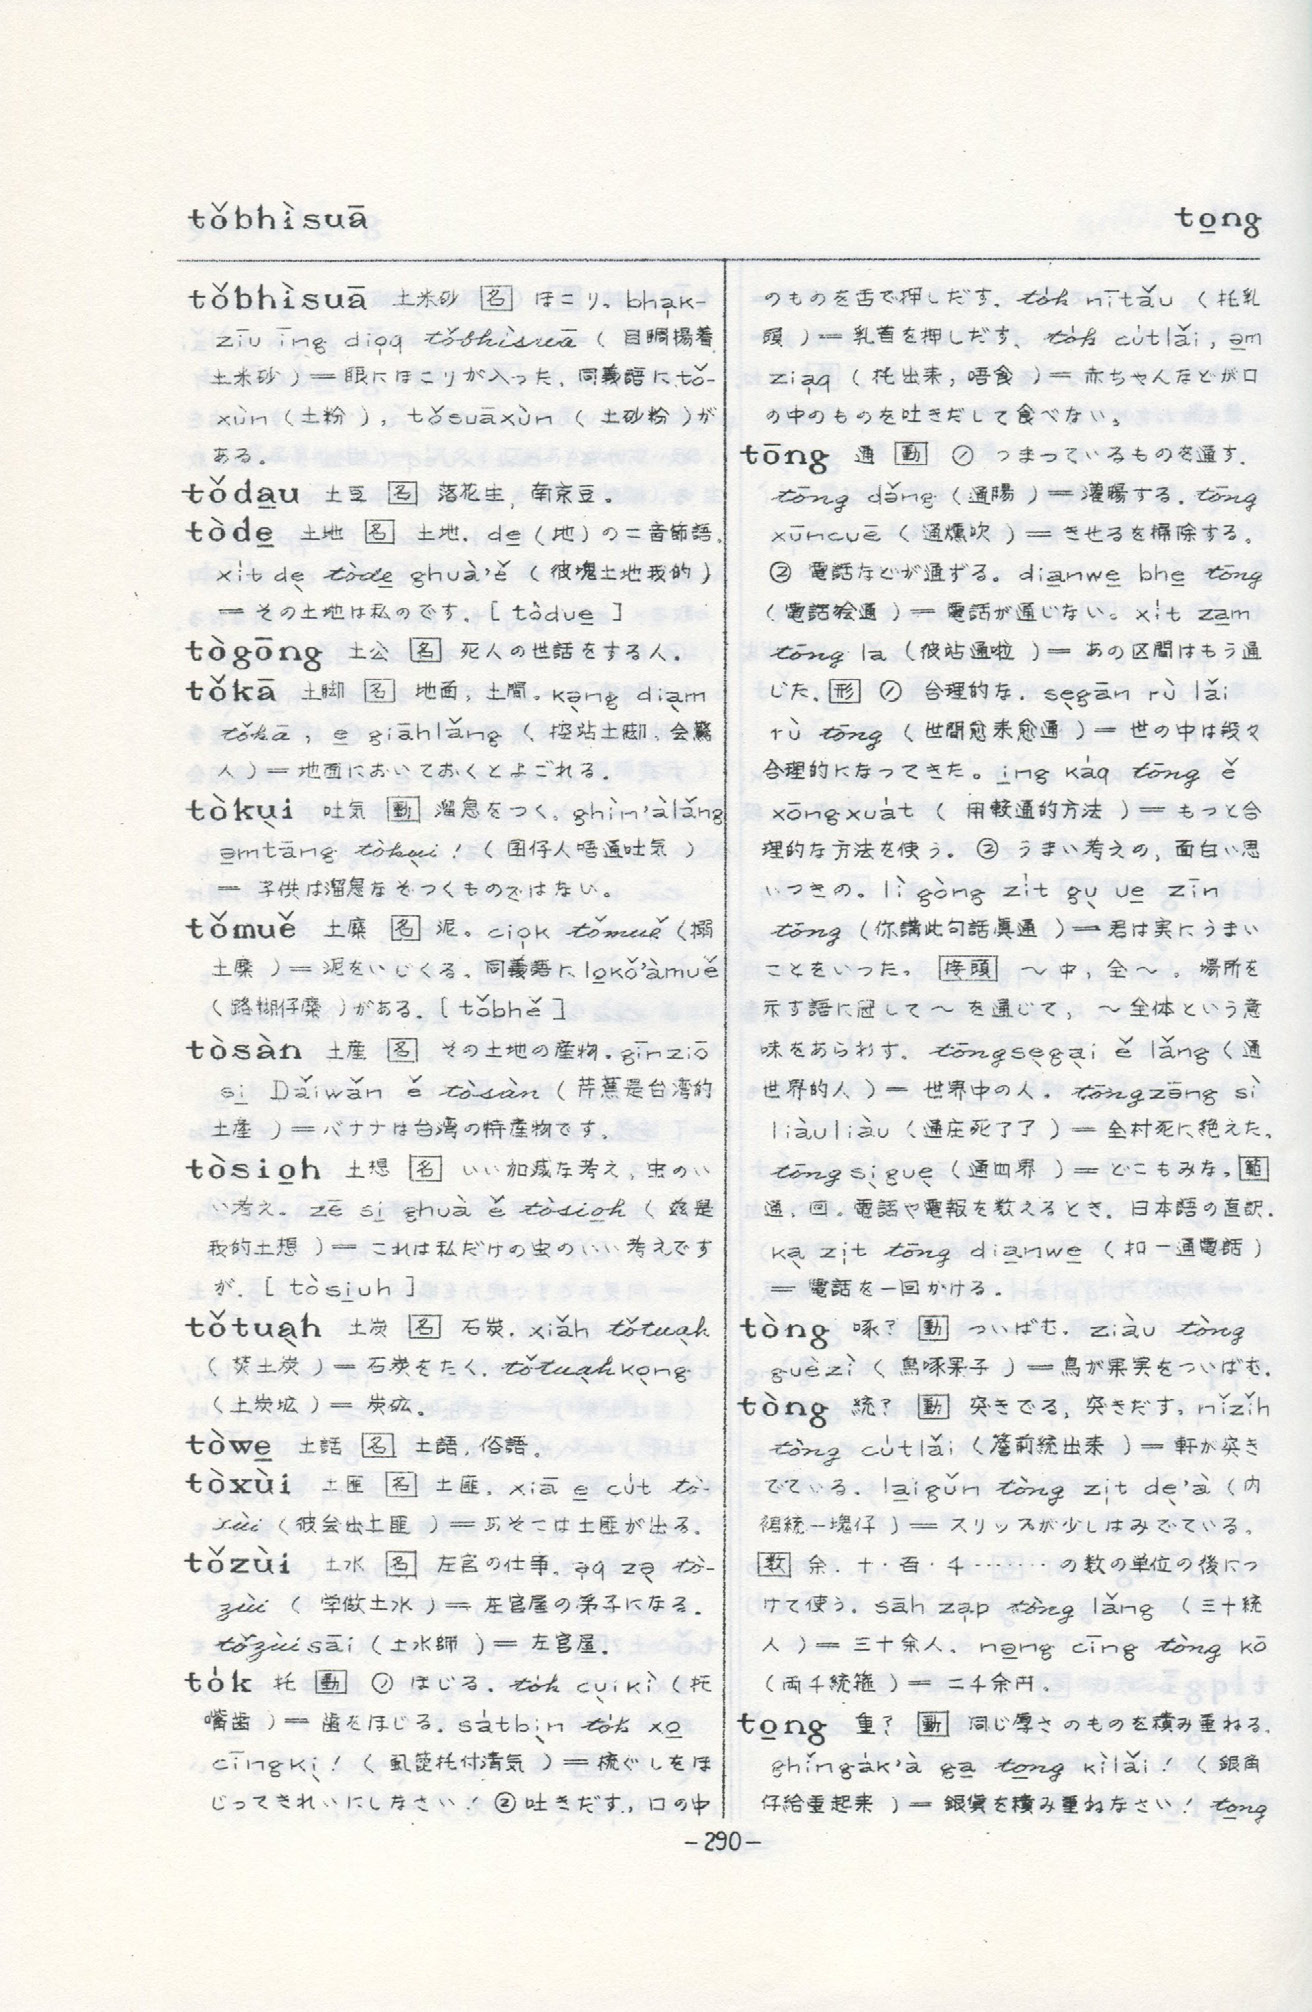 tǒbhìsuā
to̲ng
tǒbhìsuā 土米砂 [名] ほこり。bha̤k-
ziu īng dio̤q tǒbhìsuā（目睭揚着
土米砂）＝眼にほこりが入った。同義語にtǒ-
xùn（土粉）, tǒsuāxùn（土砂粉）が
ある。
tǒda̲u 土豆 [名] 落花生, 南京豆。
tòde̲ 土地 [名] 土地. de̲(地)の二音節語.
xi̍t de̤ tòde̲ ghuà'ě（彼塊土地我的）
＝その土地は私のです. [ tòdue̲ ]
tògōng 土公 [名] 死人の世話をする人.
tǒkā 土脚 [名] 地面, 土間. ka̤ng dia̤m
tǒkā, e̲ giāhlǎng（控站土脚, 会驚
人）＝地面においておくとよごれる.
tòkṳi 吐気 [動] 溜息をつく。ghìn'àlǎng
a̲mtāng tòkṳi !（囝仔人唔通吐気）
＝子供は溜息なぞつくものではない。
tǒmuě 土糜 [名] 泥。cio̤k tǒmuě（搦
土糜）＝泥をいじくる。同義語にlo̲kǒ'àmuě
（路糊仔糜）がある. [ tǒbhě ]
tòsàn 土産 [名] その土地の産物. gīnziō
si̲ Dǎiwǎn ě tòsàn（芹蕉是台湾的
土産）＝バナナは台湾の特産物です。
tòsio̲h 土想 [名] いい加減な考え, 虫のい
い考え. zē si̲ ghuà ě tòsio̲h（兹是
我的土想）＝これは私だけの虫のいい考えです
が. [ tòsi̲uh ]
tǒtua̤h 土炭 [名] 石炭. xiǎh tǒtua̤h
（焚土炭）＝石炭をたく. tǒtua̤hko̤ng
（土炭坑）＝炭砿。
tòwe̲ 土話 [名] 土語, 俗語.
tòxùi 土匪 [名] 土匪. xiā e̲ cu̍t tò-
xùi（彼会出土匪）＝あそこは土匪が出る.
tǒzùi 土水 [名] 左官の仕事. o̤q zo̤ tò-
zùi（学做土水）＝左官屋の弟子になる.
tǒzùisāi（土水師）＝左官屋.
to̍k 托 [動] ① ほじる. to̍k cṳikì（托
嘴歯）＝歯をほじる. sa̍tbi̤n to̍k xo̲
cīngki̤ !（虱篦托付清気）＝梳ぐしをほ
じってきれいにしなさい! ② 吐きだす, 口の中
のものを舌で押しだす. to̍k nītǎu（托乳
頭）＝乳首を押しだす. to̍k cu̍tlǎi, a̲m
zia̤q（托出来, 唔食）＝赤ちゃんなどが口
の中のものを吐きだして食べない。
tōng 通 [動] ① つまっているものを通す.
tōng dǎng（通腸）＝灌腸する. tōng
xūncuē（通燻吹）＝きせるを掃除する。
② 電話などが通ずる。dia̲nwe̲ bhe̲ tōng
（電話獪通）＝電話が通じない。xi̍t za̲m
tōng la（彼站通啦）＝あの区間はもう通
じた. [形] ① 合理的な. se̤gān rù lǎi
rù tōng（世間愈来愈通）＝世の中は段々
合理的になってきた。i̲ng ka̍q tōng ě
xōngxua̍t（用較通的方法）＝もっと合
理的な方法を使う。② うまい考えの, 面白い思
いつきの. lì gòng zi̍t gṳ ue̲ zīn
tōng（你講此句話真通）＝君は実にうまい
ことをいった。[接頭] 〜中, 全〜。場所を
示す語に冠して〜を通じて, 〜全体という意
味をあらわす. tōngse̤ga̤i ě lǎng（通
世界的人）＝世界中の人. tōngzāng sì
liàuliàu（通庄死了了）＝全村死に絶えた.
tōngsi̤gue̤（通四界）＝どこもみな. [範]
通, 回. 電話や電報を数えるとき. 日本語の直訳.
ka̤ zi̤t tōng dia̲nwe̲（扣一通電話）
＝電話を一回かける.
tòng 啄? [動] ついばむ. ziàu tòng
guèzì（鳥啄果子）＝鳥が果実をついばむ.
tòng 統? [動] 突きでる, 突きだす. nǐzǐh
tòng cu̍tlǎi（簷前統出来）＝軒が突き
でている. la̲igǔn tòng zi̤t de̤'à（内
裙統一塊仔）＝スリップが少しはみでている。
[数] 余. 十・百・千……の数の単位の後につ
けて使う. sāh za̤p tòng lǎng（三十統
人）＝三十余人. no̲ng cīng tòng kō
（両千統箍）＝二千余円.
to̲ng 重? [動] 同じ厚さのものを積み重ねる.
ghǐnga̍k'à ga̲ to̲ng kìlǎi !（銀角
仔給重起来）＝銀貨を積み重ねなさい! to̲ng
－290－